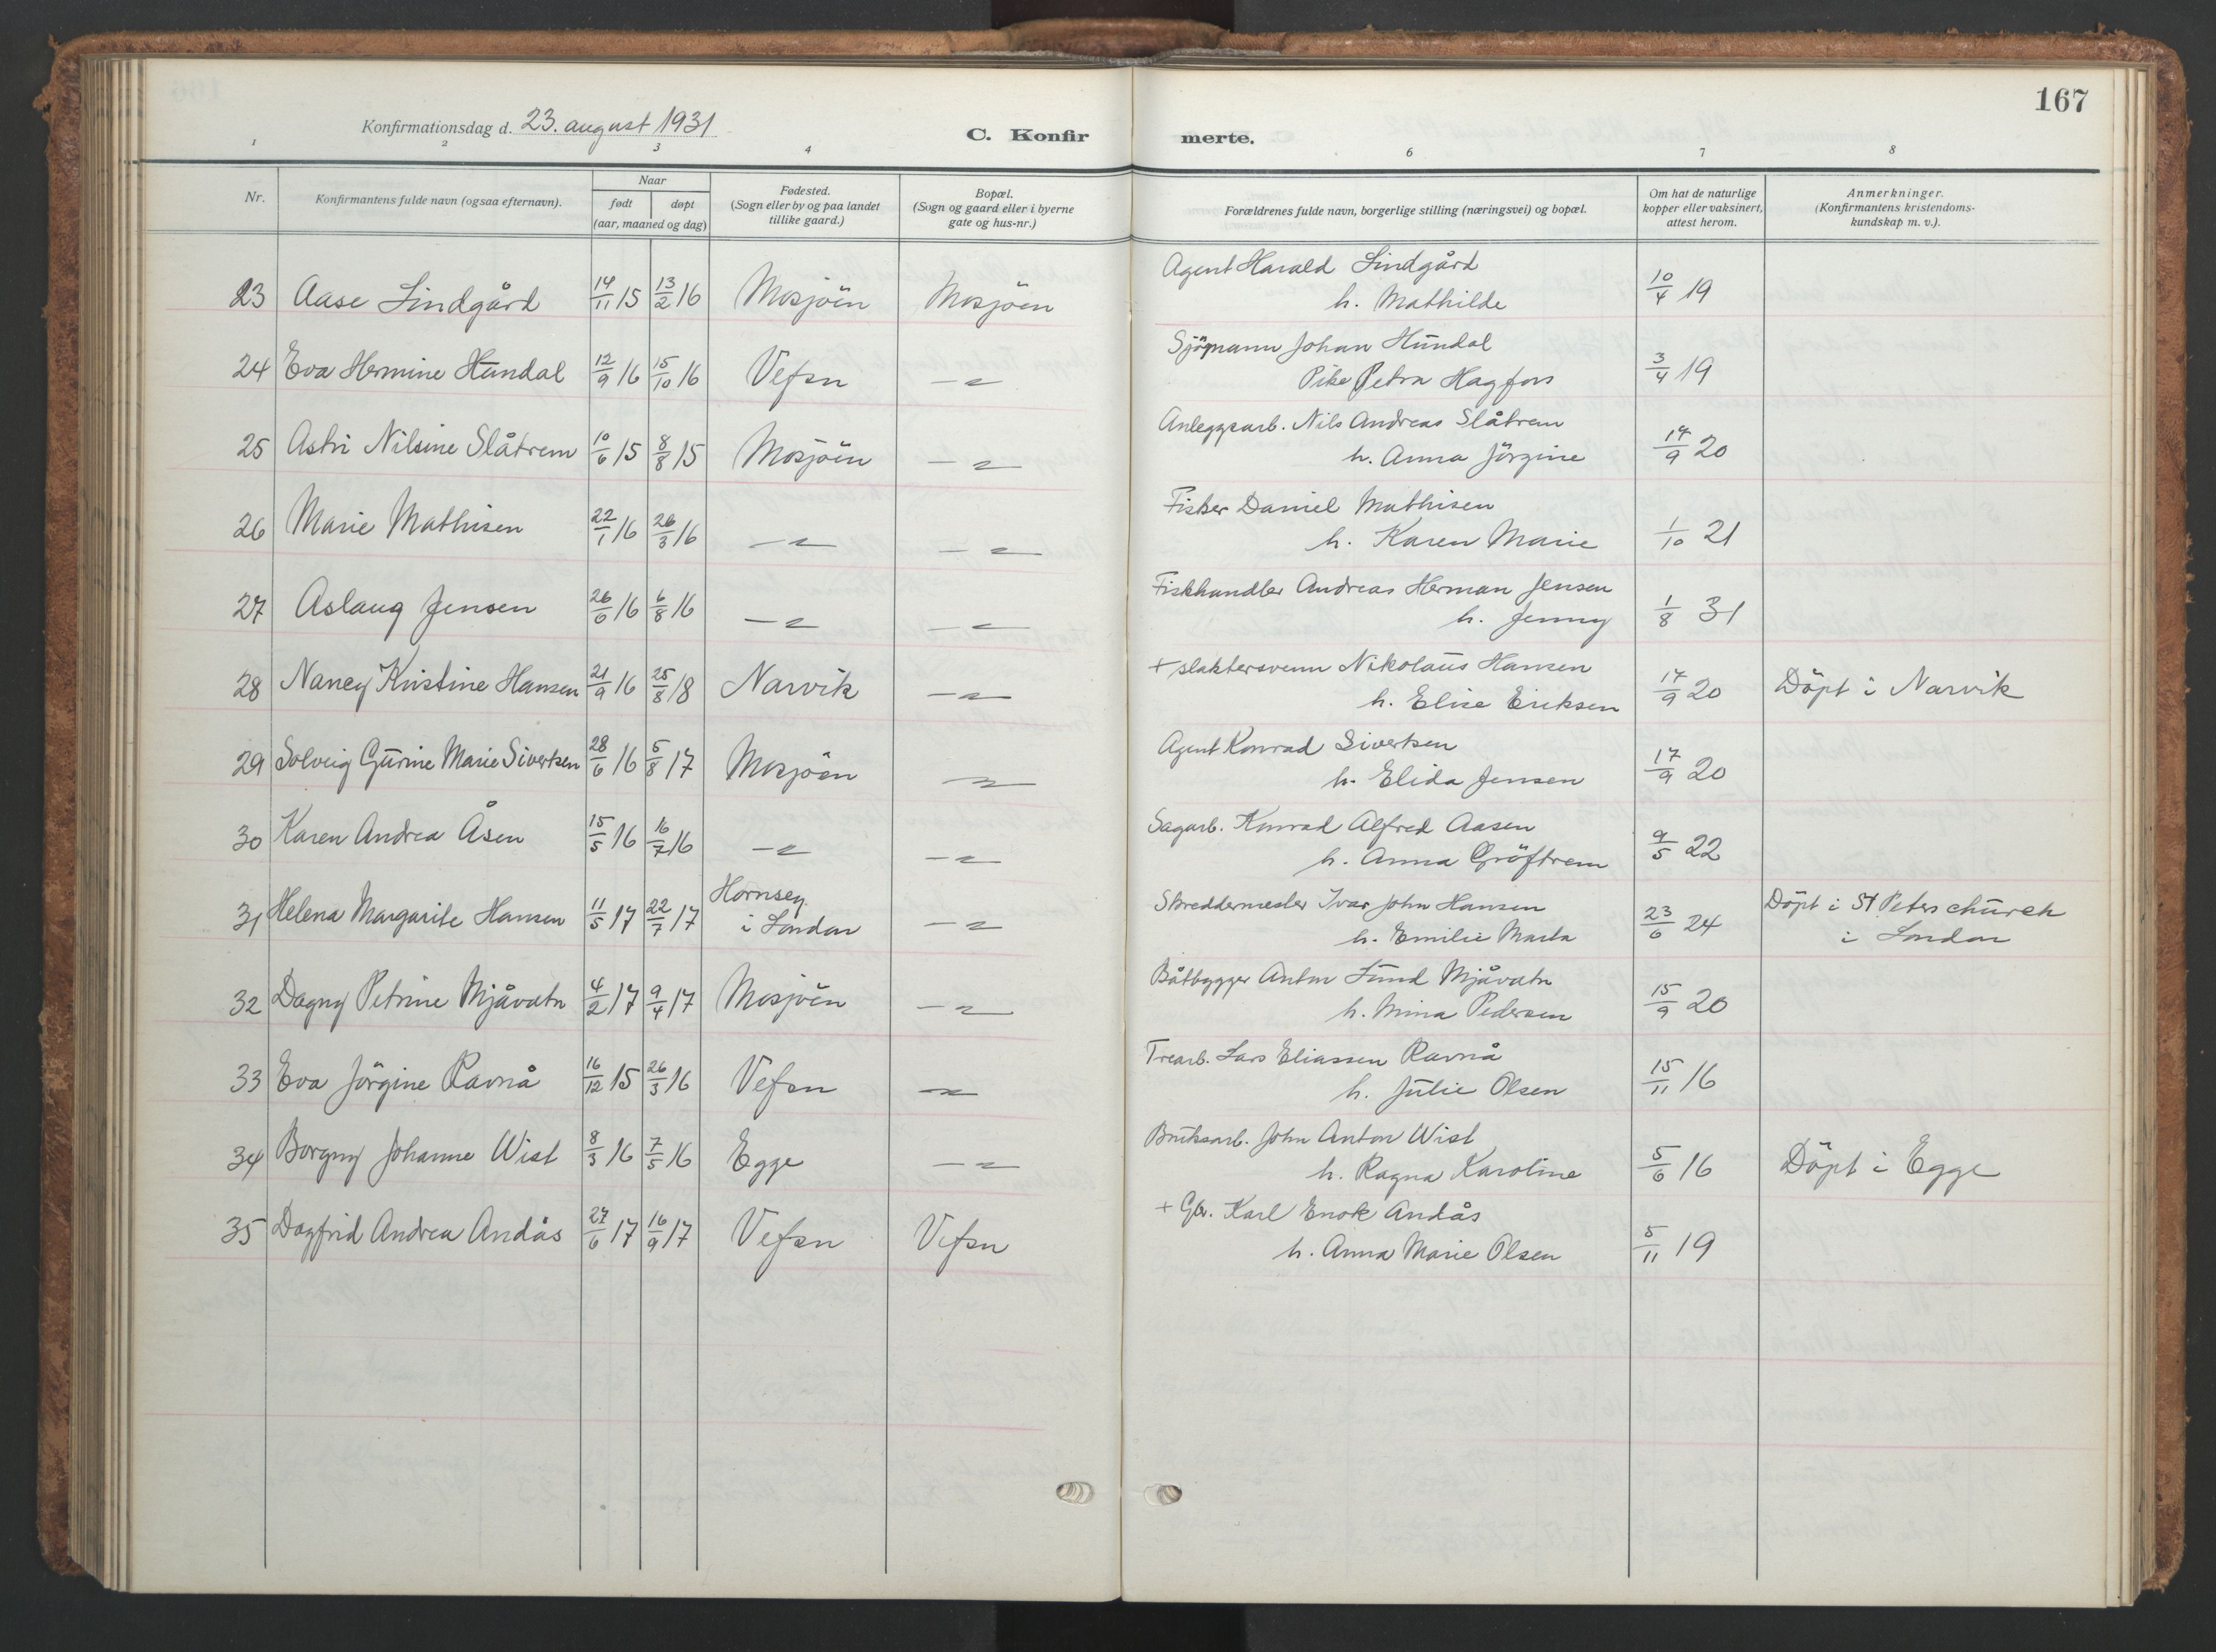 167
Konfirmationsdag d. 23. august 1931
C. Konfir merte.
1 2 3 4 6 7 8
Nr. Konfirmantens fulde navn (ogsaa efternavn). Naar født døpt (aar, maaned og dag) Fødested. (Sogn eller by og paa landet tillike gaard.) Bopæl. (Sogn og gaard eller i byerne gate og hus-nr.) Forældrenes fulde navn, borgerlige stilling (næringsvei) og bopæl. Om hat de naturlige kopper eller vaksinert, attest herom. Anmerkninger. (Konfirmantens kristendoms-kundskap m. v.).
23 Aase Lindgård 14/11 15 13/2 16 Mosjöen Mosjöen Agent Harald Lindgård
h. Mathilde 10/4 19
24 Eva Hermine Hundal 12/9 16 15/10 16 Vefsn — " — Sjömann Johan Hundal
Pike Petra Hagfors 3/4 19
25 Astri Nilsine Slåtrem 10/6 15 8/8 15 Mosjöen — " — Anleggsarb. Nils Andreas Slåtrem
h. Anna Jörgine 14/9 20
26 Marie Mathisen 22/1 16 26/3 16 — " — — " — Fisker Daniel Mathisen
h. Karen Marie 1/10 21
27 Aslaug Jensen 26/6 16 6/8 16 — " — — " — Fiskhandler Andreas Herman Jensen
h. Jenny 1/8 31
28 Nancy Kristine Hansen 21/9 16 25/8 18 Narvik — " — + slaktersvenn Nikolaus Hansen
h. Elise Eriksen 17/9 20 Döpt i Narvik
29 Solveig Gurine Marie Sivertsen 28/6 16 5/8 17 Mosjöen — " — Agent Konrad Sivertsen
h. Elida Jensen 17/9 20
30 Karen Andrea Åsen 15/5 16 16/7 16 — " — — " — Sagarb. Konrad Alfred Aasen
h. Anna Gröftrem 9/5 22
31 Helena Margarite Hansen 11/5 17 22/7 17 Hornsey
i London — " — Skreddermester Ivar John Hansen
h. Emilie Marta 23/6 24 Döpt i St Peters church
i London
32 Dagny Petrine Mjåvatn 4/2 17 9/4 17 Mosjöen — " — Båtbygger Anton Lund Mjåvatn
h. Mina Pedersen 15/9 20
33 Eva Jörgine Ravnå 16/12 15 26/3 16 Vefsn — " — Trearb. Lars Eliassen Ravnå
h. Julie Olsen 15/11 16
34 Borgny Johanne Wist 8/3 16 7/5 16 Egge — " — Bruksarb. John Anton Wist
h. Ragna Karoline 5/6 16 Döpt i Egge
35 Dagfrid Andrea Andås 27/6 17 16/9 17 Vefsn Vefsn + Gbr. Karl Enok Andås
h. Anna Marie Olsen 5/11 19